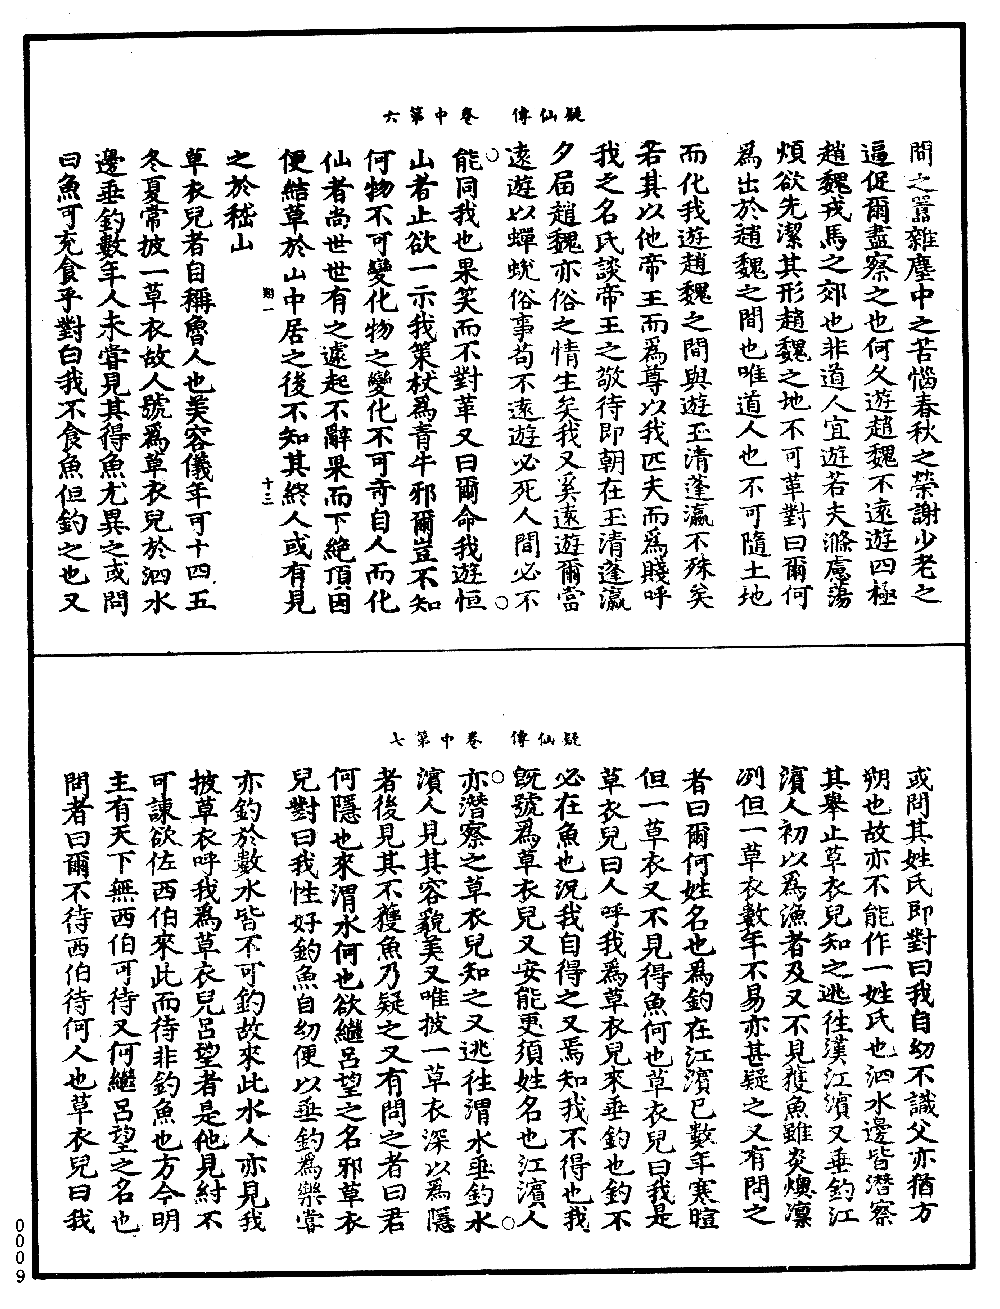 疑仙傳　卷中第六
間之囂雜塵中之苦惱春秋之榮謝少老之
逼促爾盡察之也何久遊趙魏不遠遊四極
趙魏戎馬之郊也非道人宜遊若夫滌慮蕩
煩欲先潔其形趙魏之地不可革對曰爾何
爲出於趙魏之間也唯道人也不可隨土地
而化我遊趙魏之間與遊玉清蓬瀛不殊矣
若其以他帝王而爲尊以我匹夫而爲賤呼
我之名氏談帝王之敬待即朝在玉清蓬瀛
夕届趙魏亦俗之情生矣我又奚遠遊爾當
遠遊以蟬蛻俗事苟不遠遊必死人間必不
能同我也果笑而不對革又曰爾命我遊恒
山者止欲一示我策杖爲青牛邪爾豈不知
何物不可變化物之變化不可奇自人而化
仙者尚世世有之遽起不辭果而下絶頂因
便結草於山中居之後不知其終人或有見
之於嵇山
翔一　十三
草衣兒者自稱魯人也美容儀年可十四五
冬夏常披一草衣故人號爲草衣兒於泗水
邊垂釣數年人未嘗見其得魚尤異之或問
曰魚可充食乎對曰我不食魚但釣之也又
疑仙傳　卷中第七
或問其姓氏即對曰我自幼不識父亦猶方
朔也故亦不能作一姓氏也泗水邊皆潛察
其舉止草衣兒知之逃往漢江濱又垂釣江
濱人初以爲漁者及又不見獲魚雖炎燠凛
冽但一草衣數年不易亦甚疑之又有問之
者曰爾何姓名也爲釣在江濱已數年寒暄
但一草衣又不見得魚何也草衣兒曰我是
草衣兒曰人呼我爲草衣兒來垂釣也釣不
必在魚也況我自得之又焉知我不得也我
旣號爲草衣兒又安能更須姓名也江濱人
亦潛察之草衣兒知之又逃往渭水垂釣水
濱人見其容貌美又唯披一草衣深以爲隱
者後見其不獲魚乃疑之又有問之者曰君
何隱也來渭水何也欲繼呂望之名邪草衣
兒對曰我性好釣魚自幼便以垂釣爲樂嘗
亦釣於數水皆不可釣故來此水人亦見我
披草衣呼我爲草衣兒呂望者是他見紂不
可諫欲佐西伯來此而待非釣魚也方今明
主有天下無西伯可待又何繼呂望之名也
問者曰爾不待西伯待何人也草衣兒曰我
0009